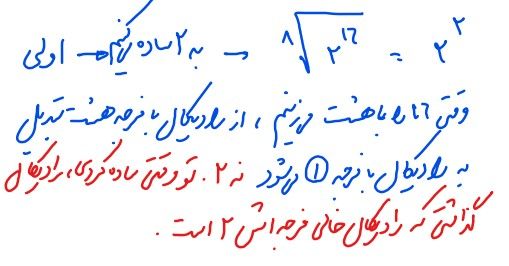 اولی ← به ۲ ساده کنیم ← ⁸√2¹⁶ = 2²
وقتی 16 را با هشت می‌زنیم، از رادیکال با فرجه هشت تبدیل
به رادیکال با فرجه ① می‌شود نه ۲. تو وقتی ساده کردی، رادیکال
گذاشتی که رادیکال خالی فرجه‌اش ۲ است.